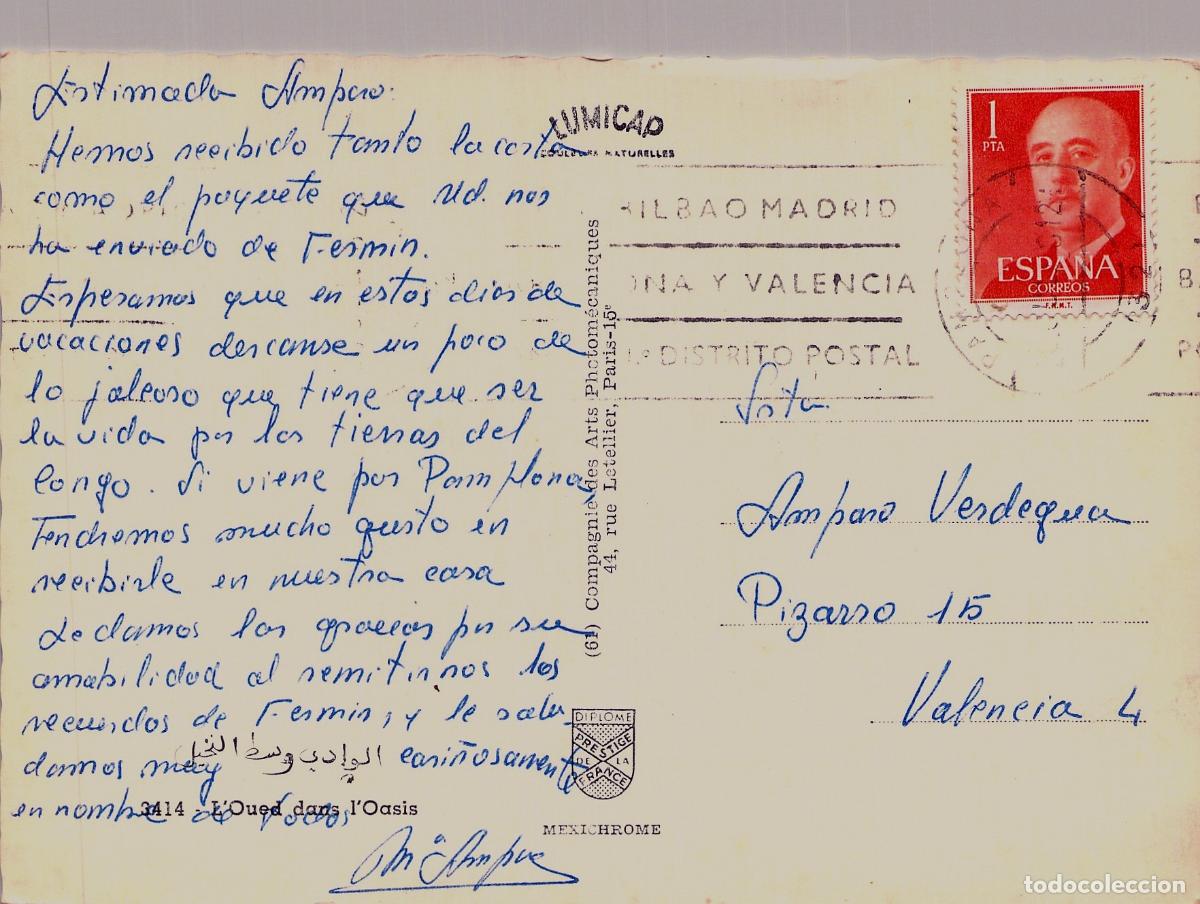 Estimada Amparo:
Hemos recibido tanto la carta
como el paquete que Ud. nos
ha enviado de Fermin.
Esperamos que en estos dias de
vacaciones descanse un poco de
lo jaleoso que tiene que ser
la vida por las tierras del
Congo. Si viene por Pamplona,
Tendremos mucho gusto en
recibirle en nuestra casa
Le damos las gracias por su
amabilidad al remitirnos los
recuerdos de Fermin, y le salu_
damos muy cariñosamente
en nombre de todos
Mª Amparo
الوادي وسط النخيل
3414 - L'Oued dans l'Oasis
LUMICAP
COULEURS NATURELLES
(61) Compagnie des Arts Photomécaniques
44, rue Letellier, Paris-15e
DIPLOME
PRESTIGE
DE LA
FRANCE
MEXICHROME
BILBAO MADRID
ONA Y VALENCIA
DISTRITO POSTAL
1
PTA
ESPAÑA
CORREOS
F.N.M.T.
Srta.
Amparo Verdegua
Pizarro 15
Valencia 4
todocoleccion